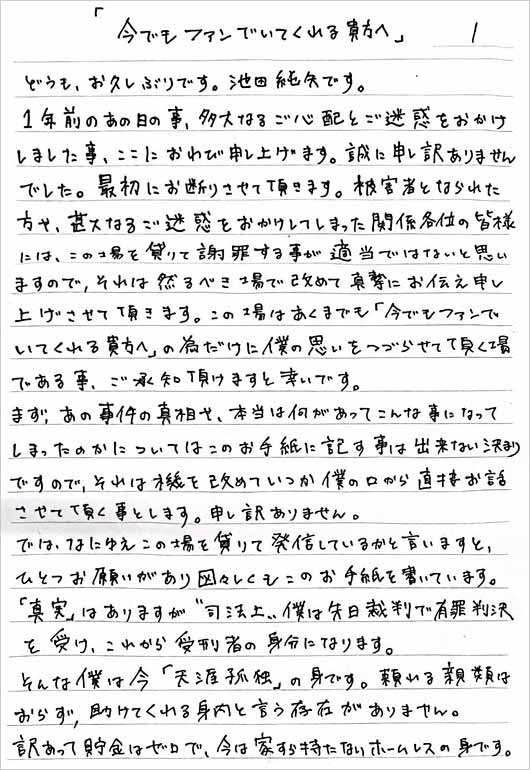 「今でもファンでいてくれる貴方へ」 1
どうも、お久しぶりです。池田純矢です。
1年前のあの日の事、多大なるご心配とご迷惑をおかけ
しました事、ここにおわび申し上げます。誠に申し訳ありません
でした。最初にお断りさせて頂きます。被害者となられた
方や、甚大なるご迷惑をおかけしてしまった関係各位の皆様
には、この場を貸りて謝罪する事が適当ではないと思い
ますので、それは然るべき場で改めて真摯にお伝え申し
上げさせて頂きます。この場はあくまでも「今でもファンで
いてくれる貴方へ」の為だけに僕の思いをつづらせて頂く場
である事、ご承知頂けますと幸いです。
まず、あの事件の真相や、本当は何があってこんな事になって
しまったのかについてはこのお手紙に記す事は出来ない決まり
ですので、それは機を改めていつか僕の口から直接お話
させて頂く事とします。申し訳ありません。
では、なにゆえこの場を貸りて発信しているかと言いますと、
ひとつお願いがあり図々しくもこのお手紙を書いています。
「真実」はありますが"司法上"、僕は先日裁判で有罪判決
を受け、これから受刑者の身分になります。
そんな僕は今「天涯孤独」の身です。頼れる親類は
おらず、助けてくれる身内と言う存在がありません。
訳あって貯金はゼロで、今は家すら持たないホームレスの身です。